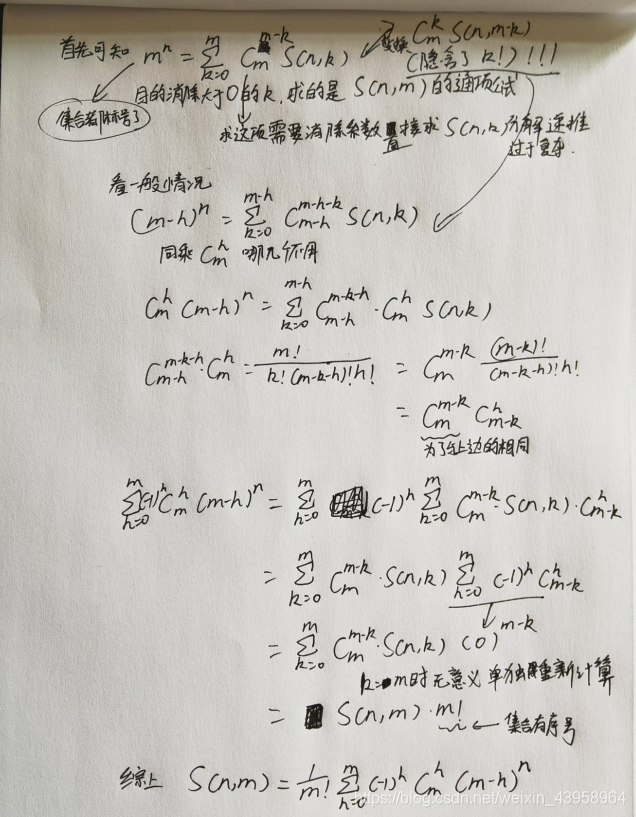 首先可知 m^n = ∑_{k=0}^{m} C_m^{m-k} S(n,k) 变换 C_m^k S(n,m-k)
(隐含了 k!)!!!
目的消除大于0的k,求的是 S(n,m) 的通项公式
集合都标号了
求这项需要消除系数 直接求 S(n,k) 仍解递推
过于复杂.
看一般情况
(m-h)^n = ∑_{k=0}^{m-h} C_{m-h}^{m-h-k} S(n,k)
同乘 C_m^h
C_m^h (m-h)^n = ∑_{k=0}^{m-h} C_{m-h}^{m-k-h} · C_m^h S(n,k)
C_{m-h}^{m-k-h} · C_m^h = m! / k!(m-k-h)!h! = C_m^{m-k} (m-k)! / (m-k-h)!h!
= C_m^{m-k} C_{m-k}^h
为了与上边的相同
∑_{h=0}^{m} (-1)^h C_m^h (m-h)^n = ∑_{h=0}^{m} (-1)^h ∑_{k=0}^{m} C_m^{m-k} · S(n,k) · C_{m-k}^h
= ∑_{k=0}^{m} C_m^{m-k} · S(n,k) ∑_{h=0}^{m} (-1)^h C_{m-k}^h
= ∑_{k=0}^{m} C_m^{m-k} · S(n,k) (0)^{m-k}
k=m时无意义 单独重新计算
= S(n,m) · m! ← 集合有序号
综上 S(n,m) = 1/m! ∑_{h=0}^{m} (-1)^h C_m^h (m-h)^n
https://blog.csdn.net/weixin_43958964